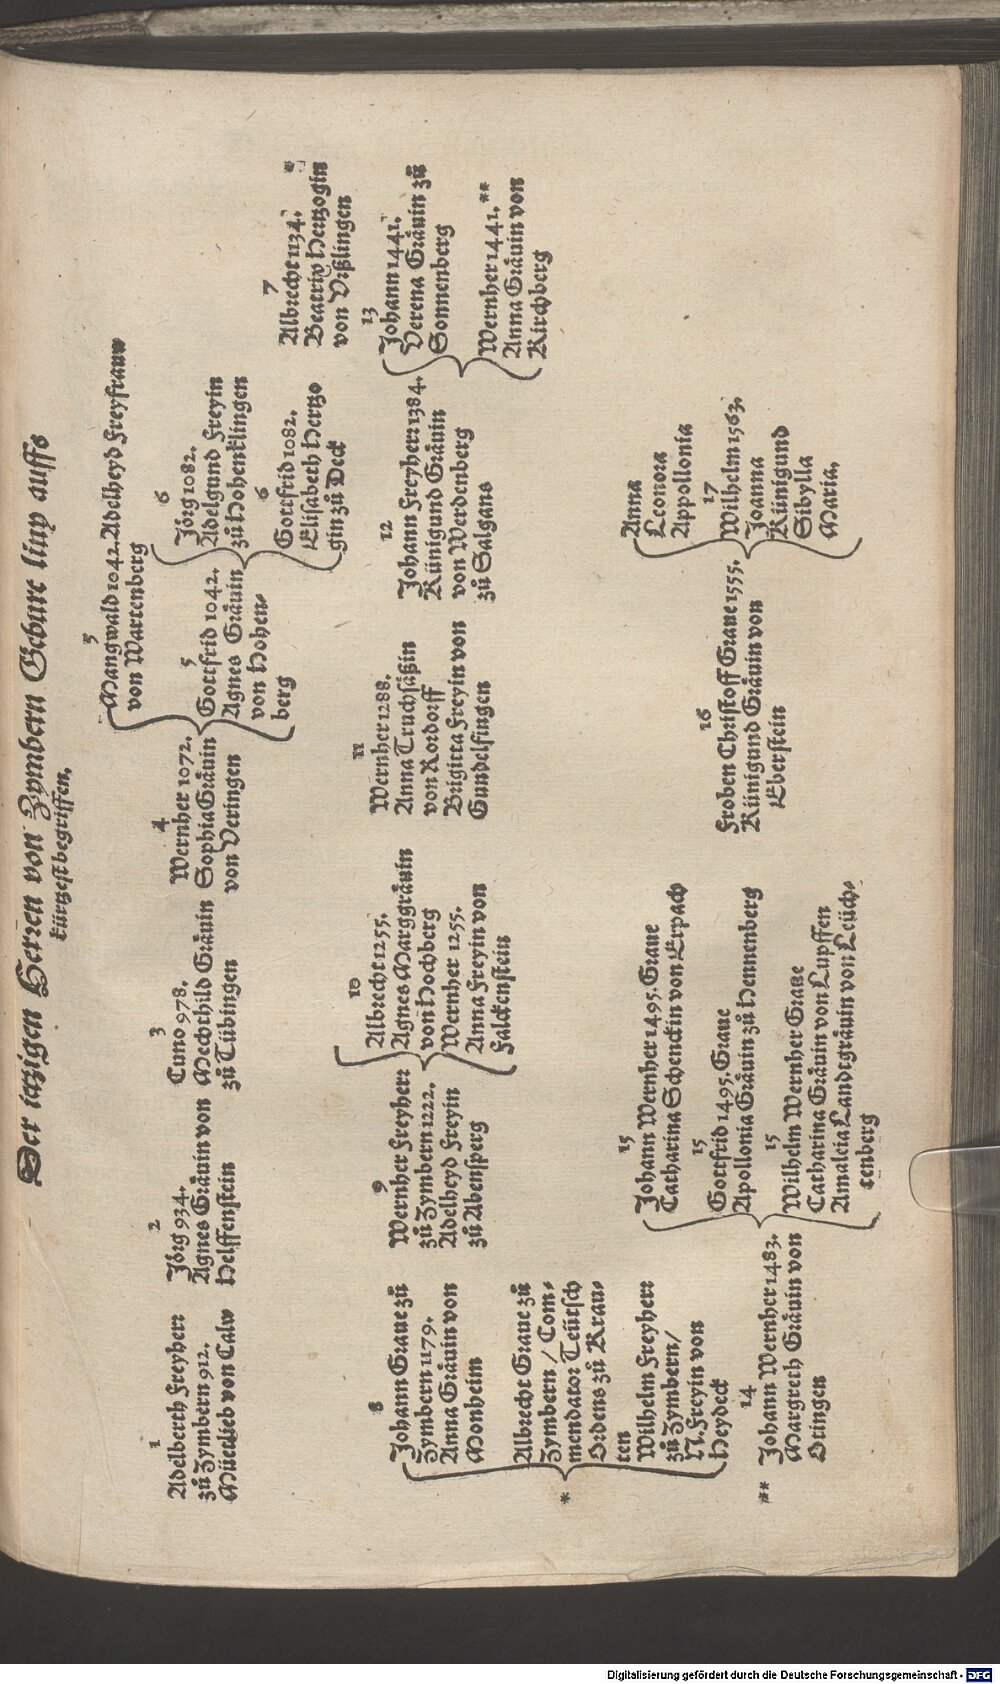 Der itzigen Herren von Zymbern Geburt liny auffs
kürtzest begriffen,
1
Adelberth Freyherr
zů Zymbern 912.
Müetlieb von Calw
2
Jörg 934.
Agnes Gräuin von
Helffenstein
3
Cuno 978.
Mechthild Gräuin
zů Tübingen
4
Wernher 1072.
Sophia Gräuin
von Veringen
5
Mangwald 1042. Adelheyd Freyfrauw
von Wartenberg
5
Gottfrid 1042.
Agnes Gräuin
von Hohen-
berg
6
Jörg 1082.
Adelgund Freyin
zů Hohenklingen
6
Gottfrid 1082.
Elisabeth Hertzo
gin zů Deck
7
Albrecht 1134. *
Beatrix Hertzogin
von Vißlingen
*
8
Johann Graue zů
Zymbern 1179.
Anna Gräuin von
Monheim
Albrecht Graue zů
Zymbern / Com-
mendator Teütsch
Ordens zů Krau-
ten
Wilhelm Freyherr
zů Zymbern /
N. Freyin von
Heydeck
9
Wernher Freyherr
zů Zymbern 1222.
Adelheyd Freyin
zů Abensperg
10
Albrecht 1255.
Agnes Marggräuin
von Hochberg
Wernher 1255.
Anna Freyin von
Falckenstein
11
Wernher 1288.
Anna Truchsäßin
von Rordorff
Brigitta Freyin von
Gundelfingen
12
Johann Freyherr 1384.
Künigund Gräuin
von Werdenberg
zů Salgans
13
Johann 1441.
Verena Gräuin zů
Sonnenberg
Wernher 1441. **
Anna Gräuin von
Kirchberg
**
14
Johann Wernher 1483.
Margreth Gräuin von
Otingen
15
Johann Wernher 1495. Graue
Catharina Schenckin von Erpach
15
Gottfrid 1495. Graue
Apollonia Gräuin zů Hennenberg
15
Wilhelm Wernher Graue
Catharina Gräuin von Lupffen
Amaleia Landtgräuin von Leüch-
tenberg
16
Froben Christoff Graue 1555.
Künigund Gräuin von
Eberstein
Anna
Leonora
Appollonia
17
Wilhelm 1563.
Joanna
Künigund
Sibylla
Maria.
Digitalisierung gefördert durch die Deutsche Forschungsgemeinschaft - DFG